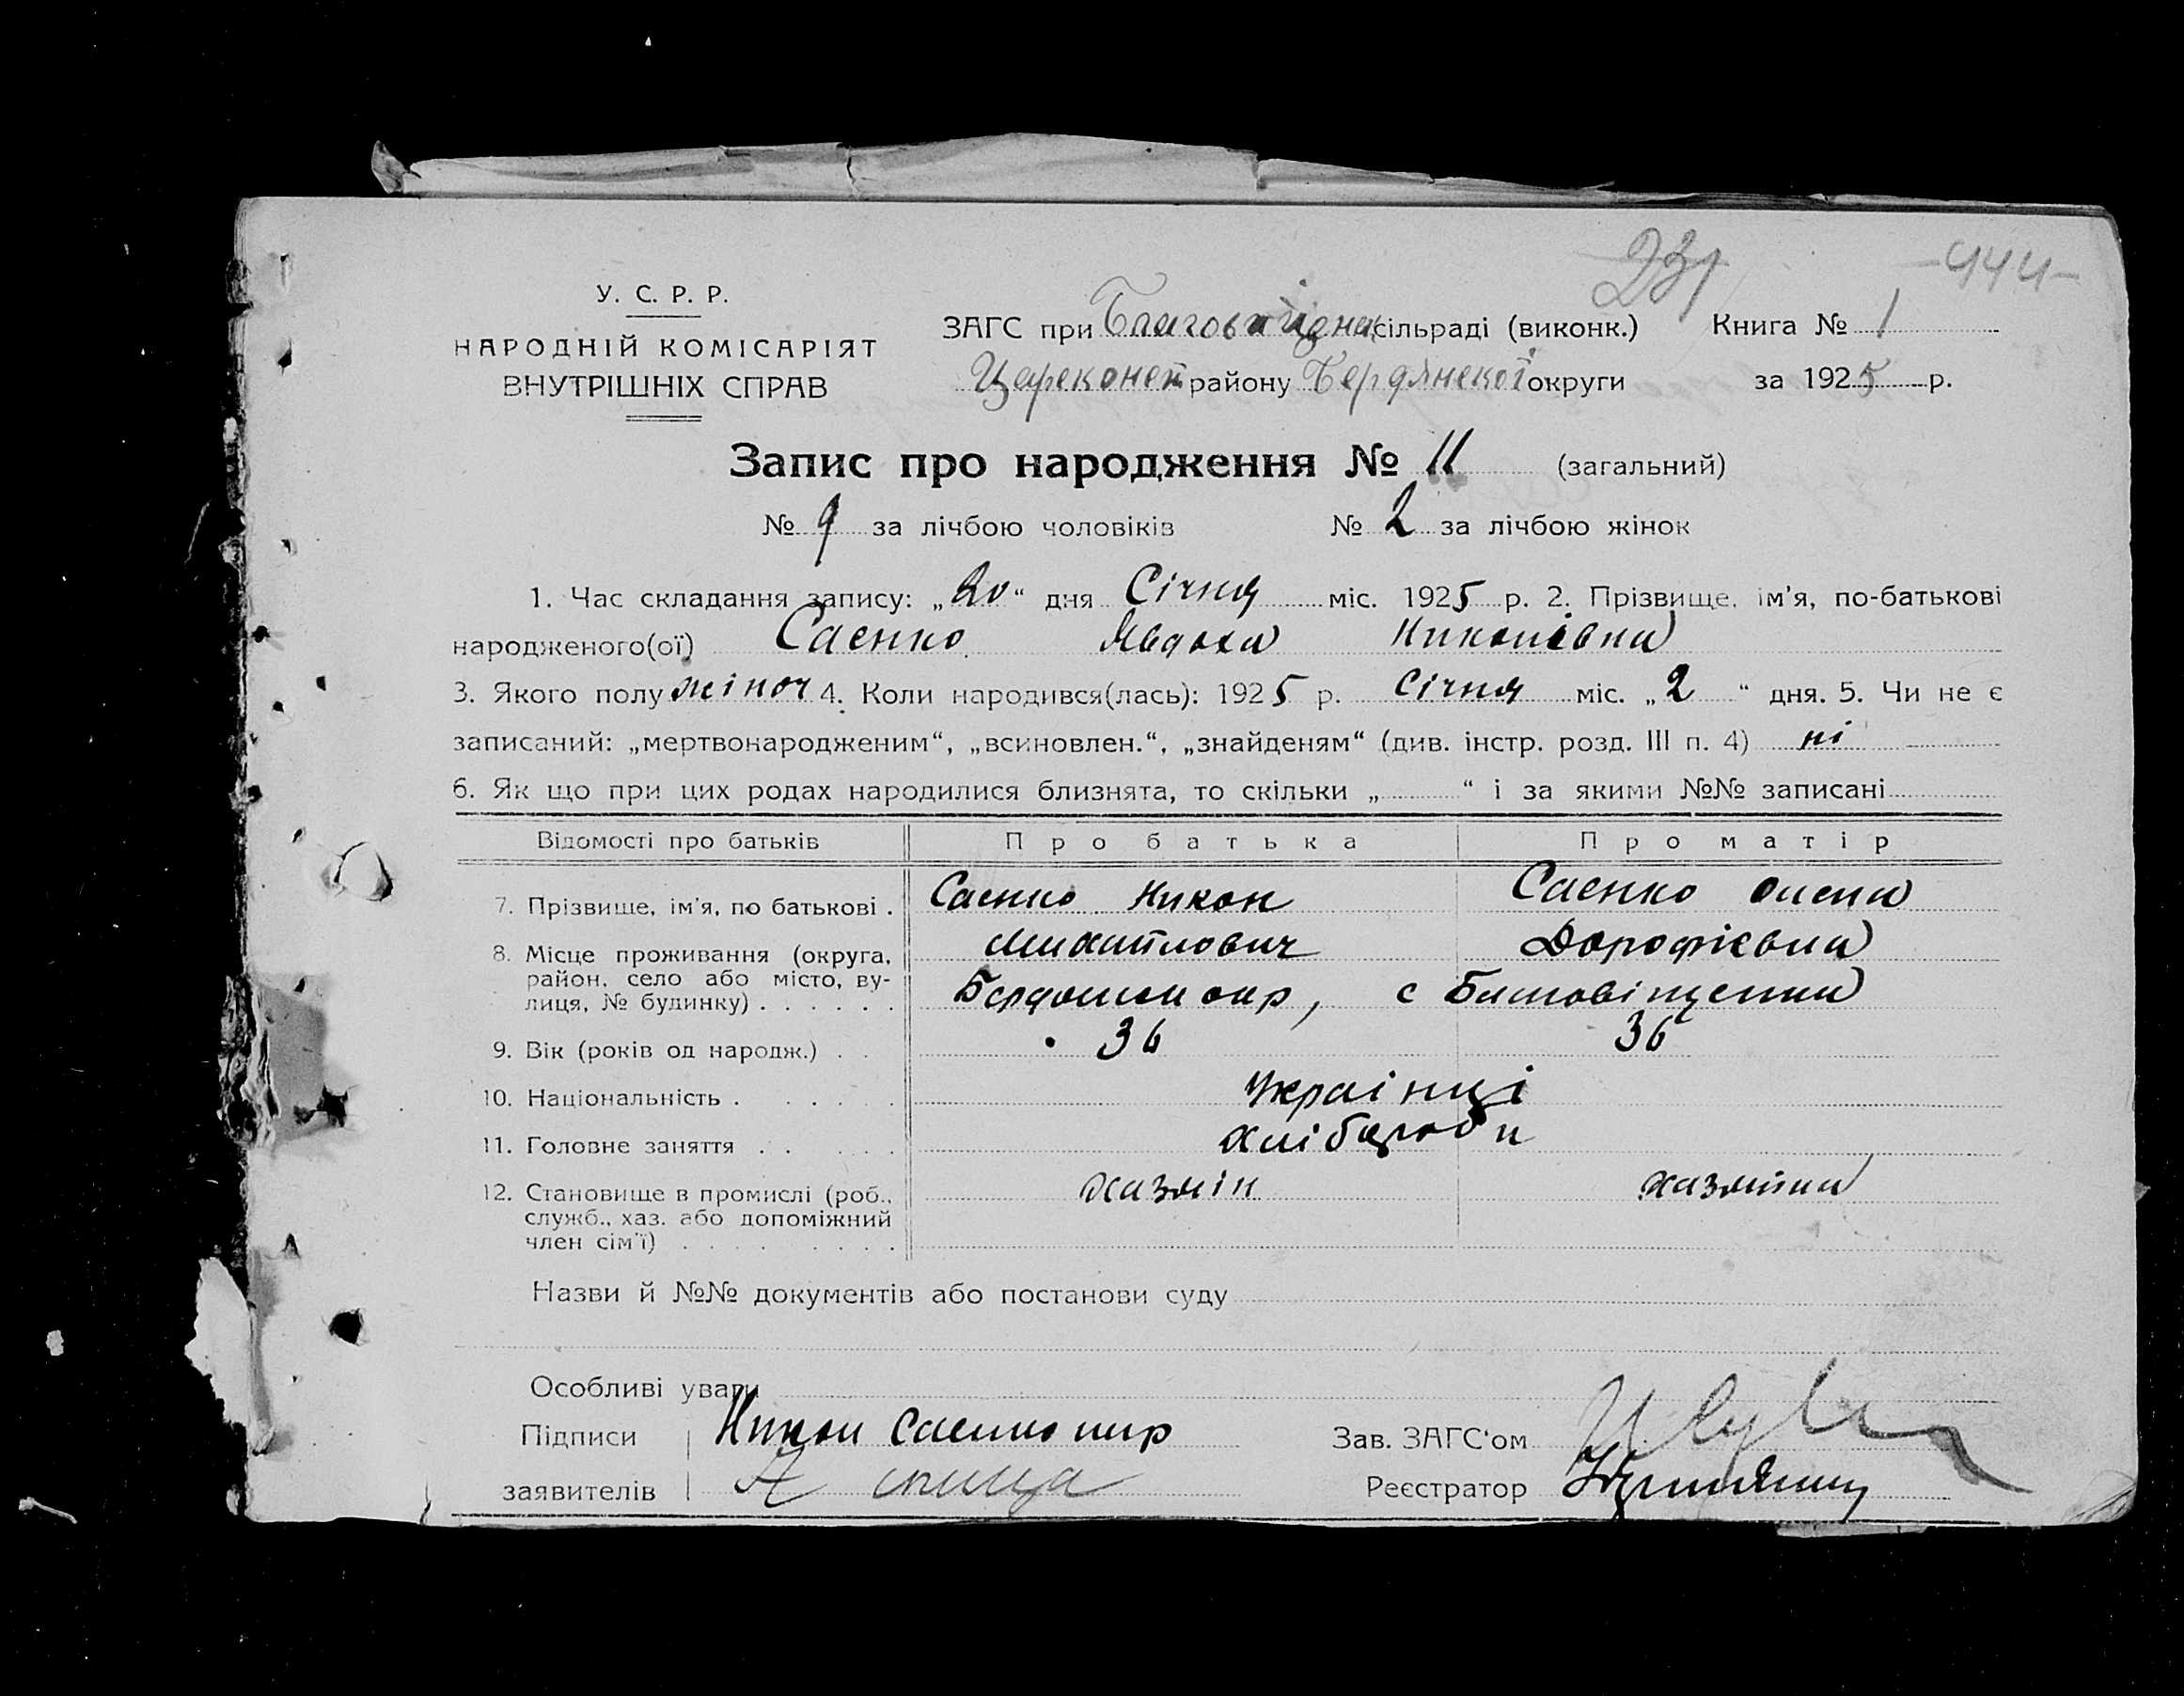 231 -444-
У. С. Р. Р.
НАРОДНІЙ КОМІСАРІЯТ
ВНУТРІШНІХ СПРАВ
ЗАГС при сільраді (виконк.) Книга № 1
Цареконст району Бердянської округи за 1925 р.
Запис про народження № 11 (загальний)
№ 9 за лічбою чоловіків № 2 за лічбою жінок
1. Час складання запису: „20“ дня Січня міс. 1925 р. 2. Прізвище, ім'я, по-батькові
народженого(ої) Саєнко Явдоха Никонівна
3. Якого полу жіноч 4. Коли народився(лась): 1925 р. Січня міс. „2“ дня. 5. Чи не є
записаний: „мертвонародженим“, „всиновлен.“, „знайденям“ (див. інстр. розд. III п. 4) ні
6. Як що при цих родах народилися близнята, то скільки „ “ і за якими №№ записані
Відомості про батьків Про батька Про матір
7. Прізвище, ім'я, по батькові . Саєнко Никон Саєнко Олена
Михайлович Дорофієвна
8. Місце проживання (округа, район, село або місто, вулиця, № будинку) . . . . . . окр, с Благовіщенка
9. Вік (років од народж.) . . 36 36
10. Національність . . . . . . Украінці
11. Головне заняття . . . . . . хлібороби
12. Становище в промислі (роб., служб., хаз. або допоміжний член сім'ї) . . . . . . . . хазяін хазяйка
Назви й №№ документів або постанови суду
Особливі уваги
Підписи Никон Саенко Зав. ЗАГС'ом
заявителів Реєстратор